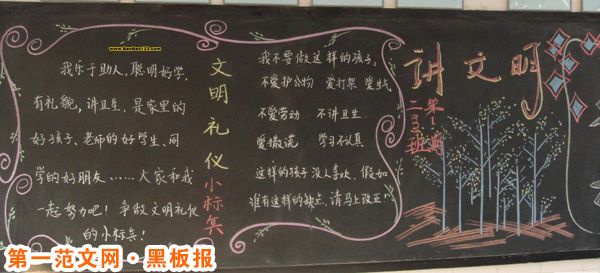 www.BanBao123.com
我乐于助人,聪明好学,
有礼貌,讲卫生,是家里的
好孩子、老师的好学生、同
学的好朋友……大家和我
一起努力吧!争做文明礼仪
的小标兵!
文明礼仪小标兵
我不要做这样的孩子:
不爱护公物 爱打架 爱生气
不爱劳动 不讲卫生
爱撒谎 学习不认真
这样的孩子没人喜欢,假如
谁有这样的缺点,请马上改正!
讲文明
二(3)班
第一范文网·黑板报